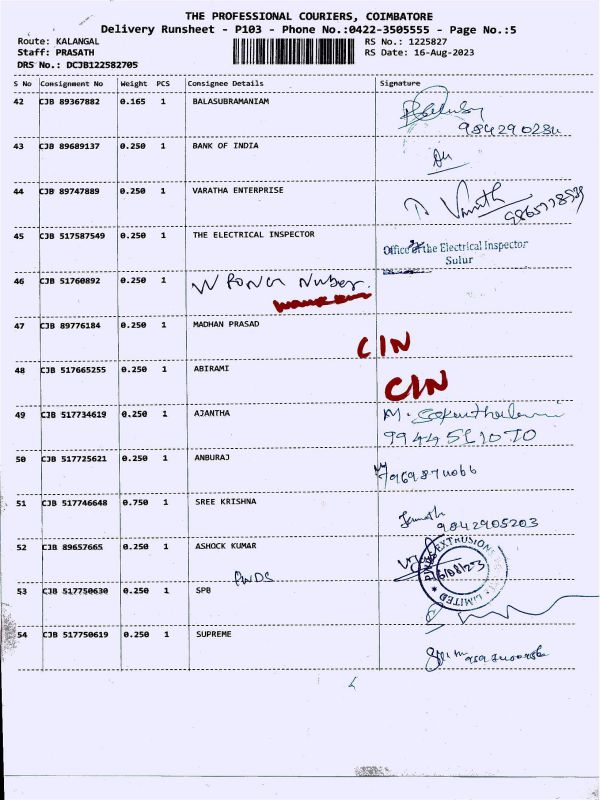 THE PROFESSIONAL COURIERS, COIMBATORE
Delivery Runsheet - P103 - Phone No.:0422-3505555 - Page No.:5
Route: KALANGAL
RS No.: 1225827
Staff: PRASATH
RS Date: 16-Aug-2023
DRS No.: DCJB122582705
S No Consignment No Weight PCS Consignee Details Signature
42 CJB 89367882 0.165 1 BALASUBRAMANIAM
984290284
43 CJB 89689137 0.250 1 BANK OF INDIA
44 CJB 89747889 0.250 1 VARATHA ENTERPRISE
45 CJB 517587549 0.250 1 THE ELECTRICAL INSPECTOR
Office of the Electrical Inspector
Sulur
46 CJB 51760892 0.250 1
47 CJB 89776184 0.250 1 MADHAN PRASAD
CIN
48 CJB 517665255 0.250 1 ABIRAMI
CIN
49 CJB 517734619 0.250 1 AJANTHA M.
50 CJB 517725621 0.250 1 ANBURAJ
51 CJB 517746648 0.750 1 SREE KRISHNA
9842905203
52 CJB 89657665 0.250 1 ASHOCK KUMAR
EXTRUSIONS LIMITED
53 CJB 517750630 0.250 1 SPB
54 CJB 517750619 0.250 1 SUPREME